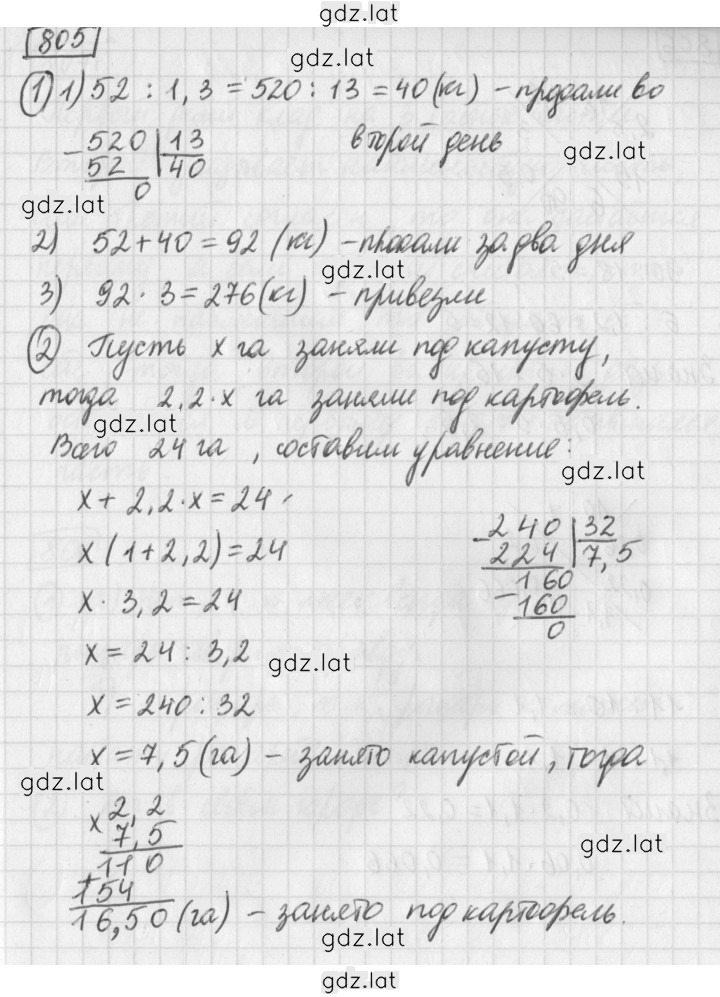 gdz.lat
805
gdz.lat
① 1) 52 : 1,3 = 520 : 13 = 40 (кг) - продали во
второй день
520 | 13
- 52 | 40
0
gdz.lat
gdz.lat
2) 52 + 40 = 92 (кг) - продали за два дня
gdz.lat
3) 92 · 3 = 276 (кг) - привезли
② Пусть х га заняли под капусту,
тогда 2,2 · х га заняли под картофель.
gdz.lat
Всего 24 га, составим уравнение:
gdz.lat
х + 2,2 · х = 24
х (1 + 2,2) = 24
х · 3,2 = 24
х = 24 : 3,2
gdz.lat
х = 240 : 32
240 | 32
- 224 | 7,5
160
- 160
0
х = 7,5 (га) - занято капустой, тогда
gdz.lat
2,2
х 7,5
110
+ 154
16,50 (га) - занято под картофель.
gdz.lat
gdz.lat
gdz.lat